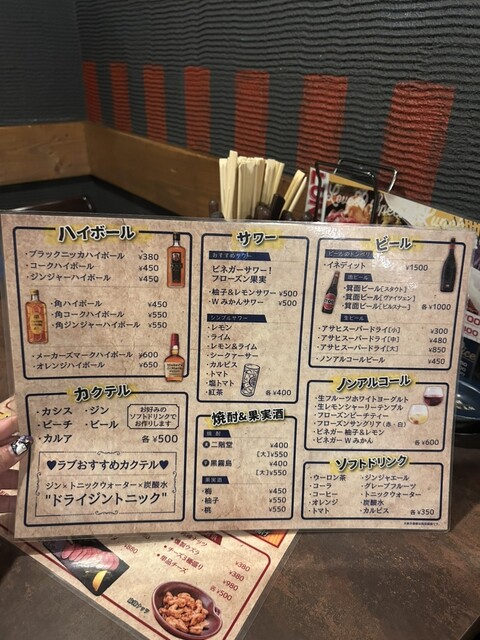 ハイボール
・ブラックニッカハイボール ¥380
・コークハイボール ¥450
・ジンジャーハイボール ¥450
・角ハイボール ¥450
・角コークハイボール ¥550
・角ジンジャーハイボール ¥550
・メーカーズマークハイボール ¥600
・オレンジハイボール ¥650
カクテル
・カシス ・ジン
・ピーチ ・ビール
・カルア
お好みの
ソフトドリンクで
お作りします
各¥500
♥ラブおすすめカクテル♥
ジン×トニックウォーター×炭酸水
"ドライジントニック"
サワー
おすすめサワー
ビネガーサワー!
フローズン果実
・柚子&レモンサワー ¥500
・W みかんサワー ¥500
シンプルサワー
・レモン
・ライム
・レモン&ライム
・シークァーサー
・カルピス
・トマト
・塩トマト
・紅茶
各¥400
焼酎&果実酒
焼酎
二階堂 ¥400
[大]¥550
黒霧島 ¥400
[大]¥550
果実酒
・梅 ¥450
・柚子 ¥550
・桃 ¥550
ビール
・イネディット ¥1500
・箕面ビール[スタウト]
・箕面ビール[ヴァイツェン]
・箕面ビール[ピルスナー]
各¥1000
生ビール
・アサヒスーパードライ[小] ¥300
・アサヒスーパードライ[中] ¥480
・アサヒスーパードライ[大] ¥850
・ノンアルコールビール ¥450
ノンアルコール
・生フルーツホワイトヨーグルト
・生レモンシャーリーテンプル
・フローズンピーチティー
・フローズンサングリア(赤・白)
・ビネガー 柚子&レモン
・ビネガー W みかん
各¥600
ソフトドリンク
・ウーロン茶 ・ジンジャエール
・コーラ ・グレープフルーツ
・コーヒー ・トニックウォーター
・オレンジ ・炭酸水
・トマト ・カルピス
各¥350
・チーズ3種盛り
・単品チーズ
¥380
¥380
¥980
各¥500